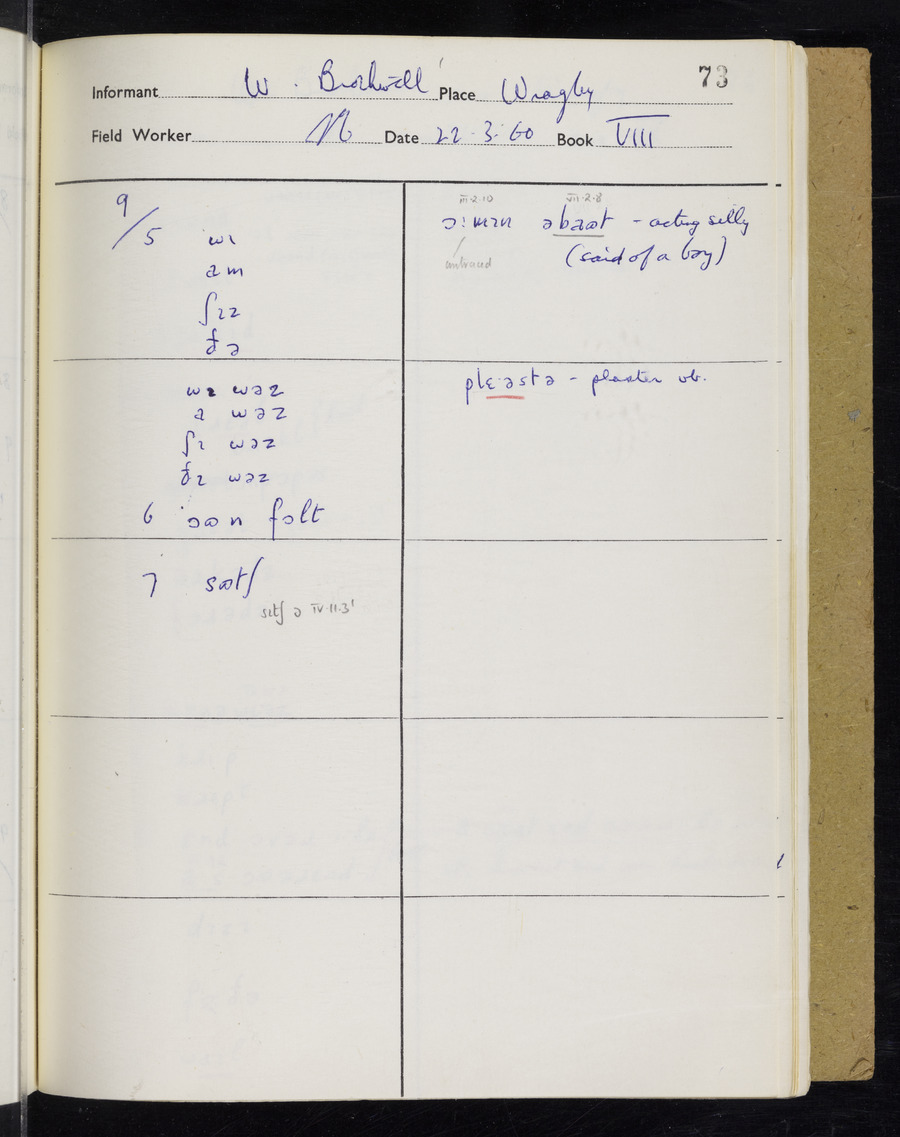 73
Informant W. Brothwell Place Wragby
Field Worker N Date 22.3.60 Book VIII
9/5 wɪ
am
ʃɪz
ðə
wɪ wəz
a wəz
ʃɪ wəz
ðɪ wəz
6 ɔən fɔlt
7 sɷtʃ
sɪtʃ ə IV.11.3'
III.2.10 VII.2.8
ɔ:mɪn əbaɷt - acting silly
untraced (said of a boy)
plɛ·əstə - plaster vb.